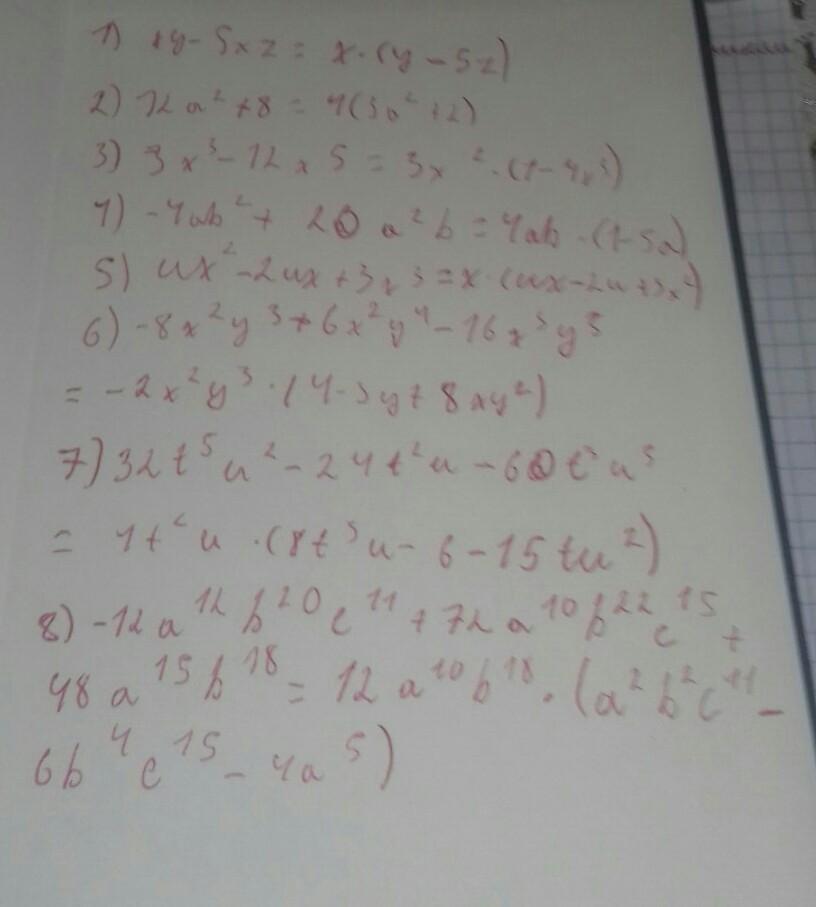 1) xy - 5xz = x · (y - 5z)
2) 12a² + 8 = 4(3a² + 2)
3) 3x³ - 12x5 = 3x² · (1 - 4x³)
4) -4ab² + 20a²b = 4ab · (1-5a)
5) ux² - 2ux + 3x3 = x · (ux - 2u + 3x²)
6) -8x²y³ + 6x²y⁴ - 16x³y⁵
= -2x²y³ · (4 - 3y + 8xy²)
7) 32t⁵u² - 24t²u - 60t³u³
= 4t²u · (8t³u - 6 - 15tu²)
8) -12a¹²b²⁰c¹¹ + 72a¹⁰b²²c¹⁵ +
48a¹⁵b¹⁸ = 12a¹⁰b¹⁸ · (a²b²c¹¹ -
6b⁴c¹⁵ - 4a⁵)